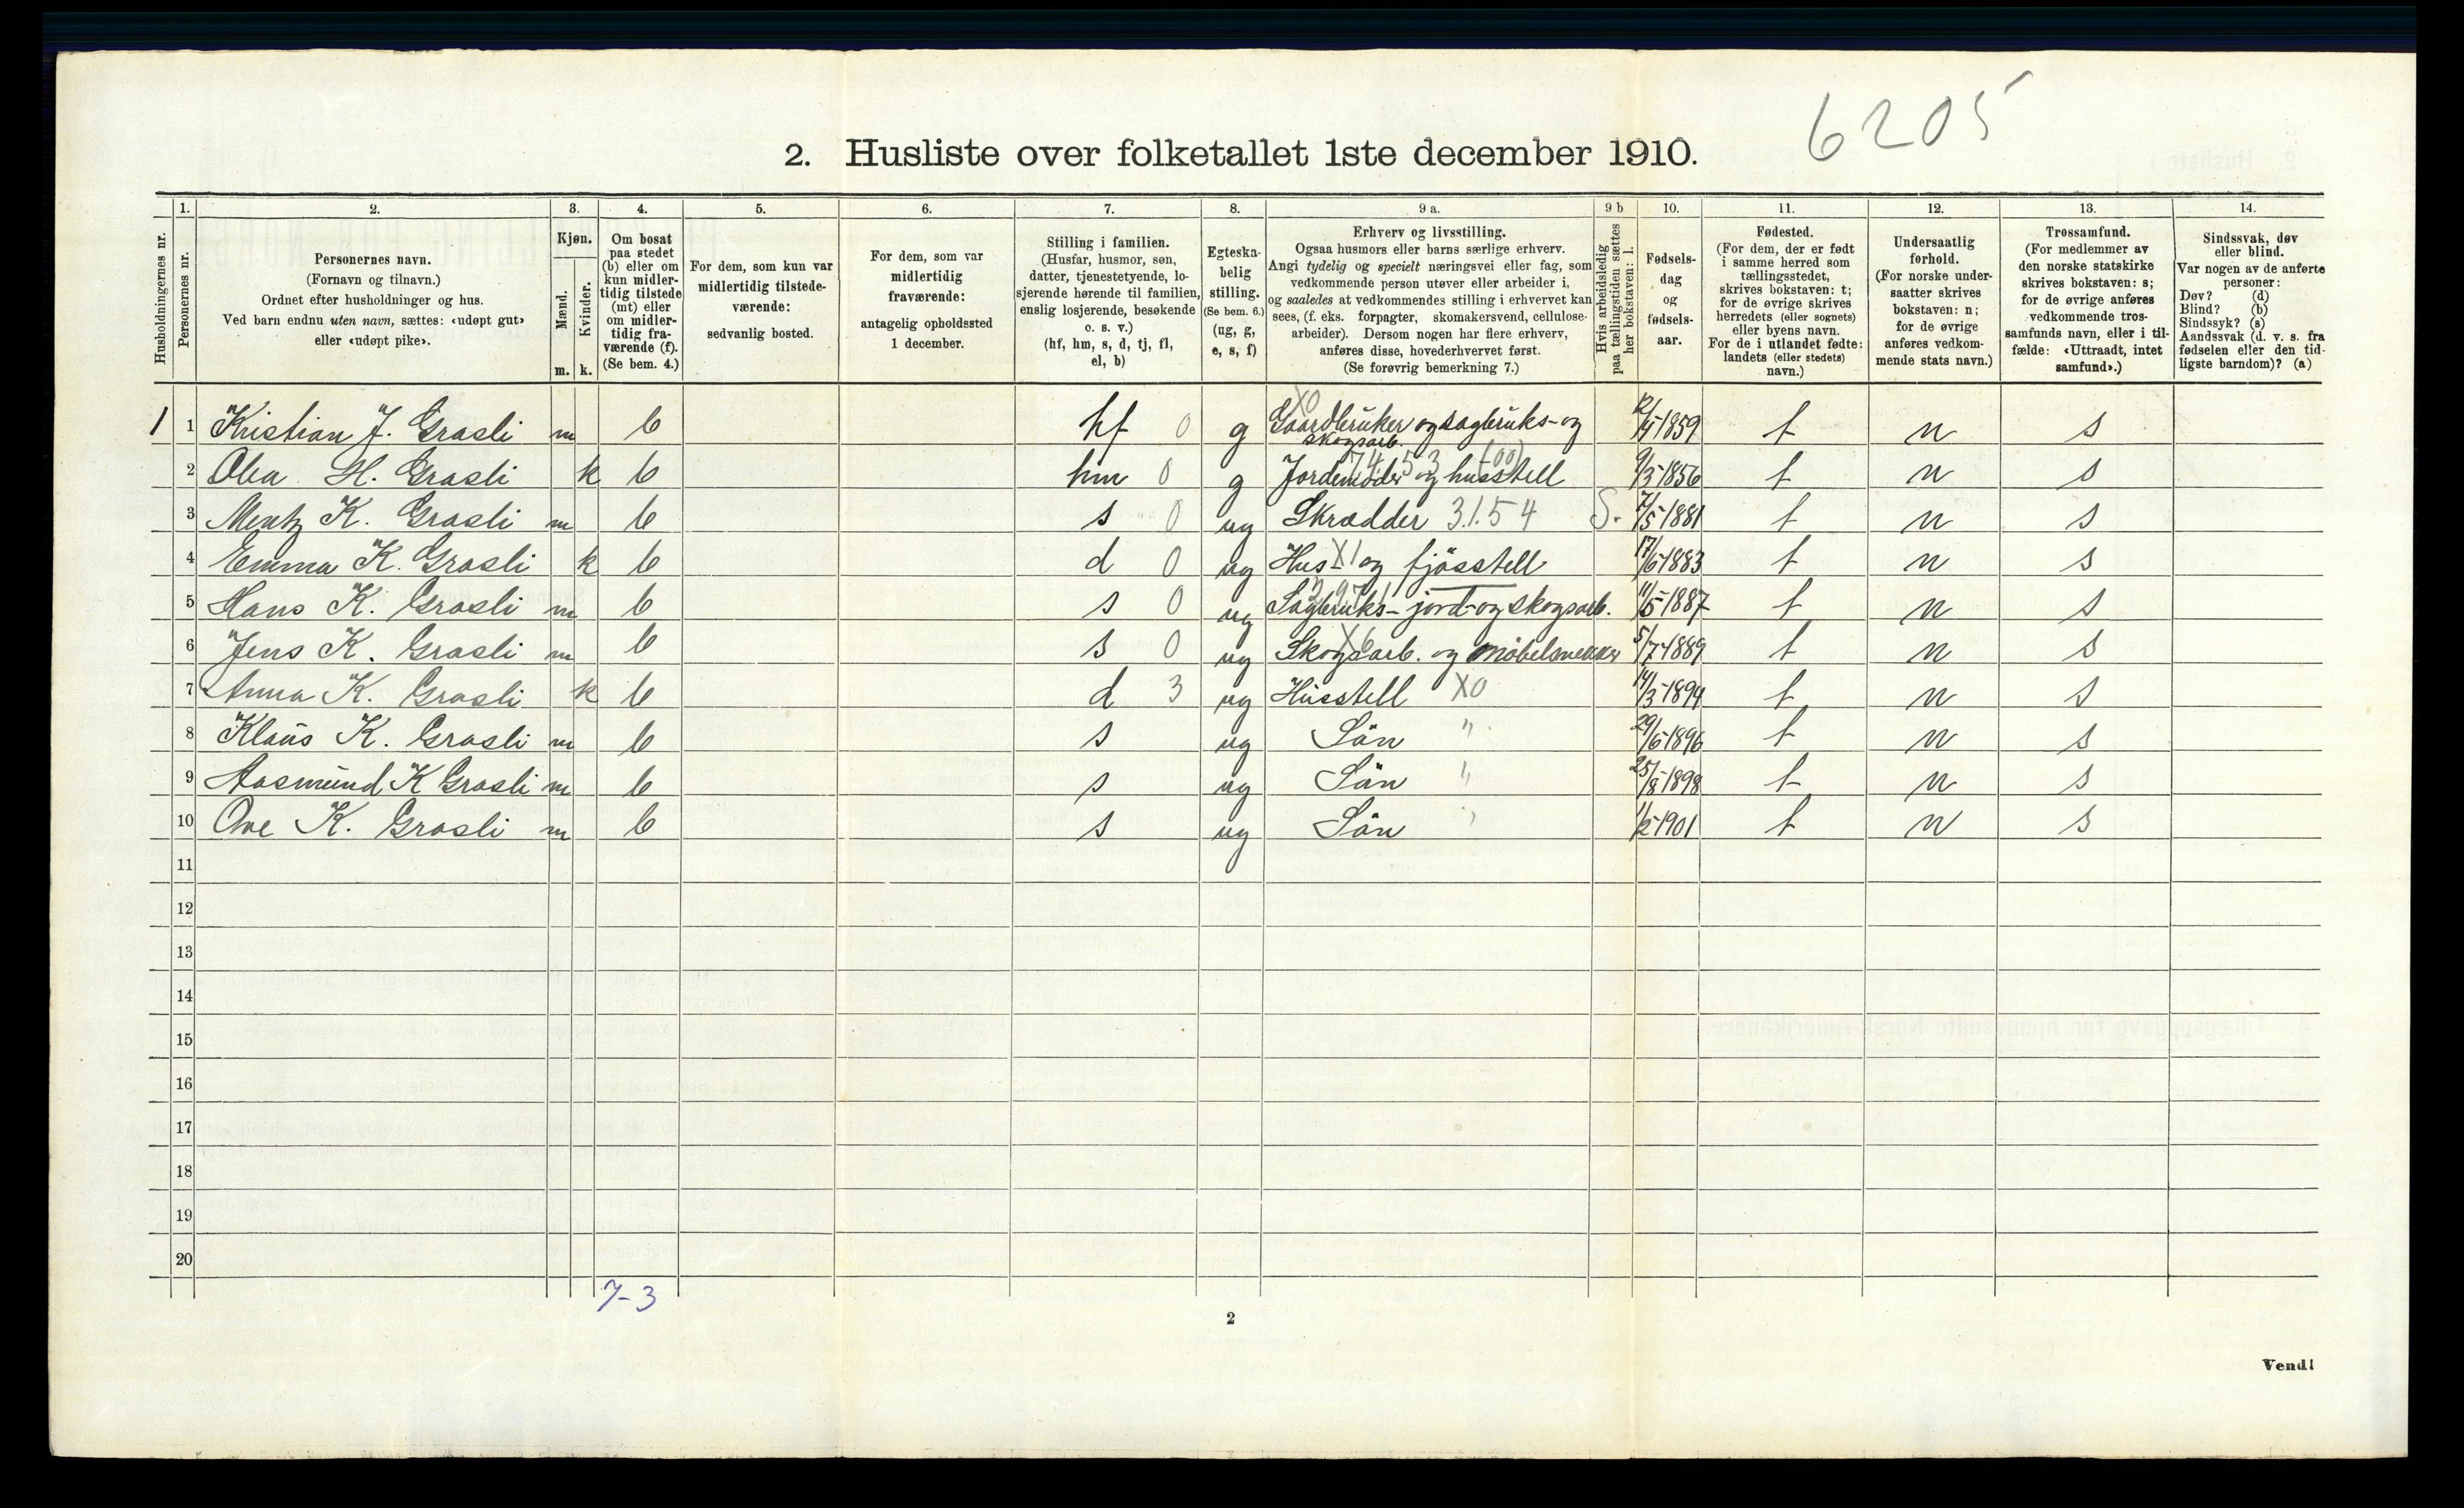 6205
2. Husliste over folketallet 1ste december 1910.
Husholdningernes nr.
1.
Personernes nr.
2.
Personernes navn.
(Fornavn og tilnavn.)
Ordnet efter husholdninger og hus.
Ved barn endnu uten navn, sættes: «udøpt gut»
eller «udøpt pike».
3.
Kjøn.
Mænd.
Kvinder.
m. k.
4.
Om bosat
paa stedet
(b) eller om
kun midler-
tidig tilstede
(mt) eller
om midler-
tidig fra-
værende (f).
(Se bem. 4.)
5.
For dem, som kun var
midlertidig tilstede-
værende:
sedvanlig bosted.
6.
For dem, som var
midlertidig
fraværende:
antagelig opholdssted
1 december.
7.
Stilling i familien.
(Husfar, husmor, søn,
datter, tjenestetyende, lo-
sjerende hørende til familien,
enslig losjerende, besøkende
o. s. v.)
(hf, hm, s, d, tj, fl,
el, b)
8.
Egteska-
belig
stilling.
(Se bem. 6.)
(ug, g,
e, s, f)
9 a.
Erhverv og livsstilling.
Ogsaa husmors eller barns særlige erhverv.
Angi tydelig og specielt næringsvei eller fag, som
vedkommende person utøver eller arbeider i,
og saaledes at vedkommendes stilling i erhvervet kan
sees, (f. eks. forpagter, skomakersvend, cellulose-
arbeider). Dersom nogen har flere erhverv,
anføres disse, hovederhvervet først.
(Se forøvrig bemerkning 7.)
9 b
Hvis arbeidsledig
paa tællingstiden sættes
her bokstaven: l.
10.
Fødsels-
dag
og
fødsels-
aar.
11.
Fødested.
(For dem, der er født
i samme herred som
tællingsstedet,
skrives bokstaven: t;
for de øvrige skrives
herredets (eller sognets)
eller byens navn.
For de i utlandet fødte:
landets (eller stedets)
navn.)
12.
Undersaatlig
forhold.
(For norske under-
saatter skrives
bokstaven: n;
for de øvrige
anføres vedkom-
mende stats navn.)
13.
Trossamfund.
(For medlemmer av
den norske statskirke
skrives bokstaven: s;
for de øvrige anføres
vedkommende tros-
samfunds navn, eller i til-
fælde: «Uttraadt, intet
samfund».)
14.
Sindssvak, døv
eller blind.
Var nogen av de anførte
personer:
Døv? (d)
Blind? (b)
Sindssyk? (s)
Aandssvak (d. v. s. fra
fødselen eller den tid-
ligste barndom)? (a)
1 1 Kristian J. Grasli m b hf 0 g Gaardbruker og sagbruks- og skogsarb. X0 12/4-1859 t n s
2 Olea H. Grasli k b hm 0 g Jordemoder og husstell 9/3-1856 t n s
3 Mentz K. Grasli m b s 0 ug Skrædder 3.1.54 S. 7/5-1881 t n s
4 Emma K. Grasli k b d 0 ug Hus- og fjösstell X1 17/6-1883 t n s
5 Hans K. Grasli m b s 0 ug Sagbruks- jord- og skogsarb. 11/5-1887 t n s
6 Jens K. Grasli m b s 0 ug Skogsarb. og möbelsnekker X6 5/7-1889 t n s
7 Anna K. Grasli k b d 3 ug Husstell X0 14/3-1894 t n s
8 Klaus K. Grasli m b s ug Sön " 29/6-1896 t n s
9 Aasmund K Grasli m b s ug Sön " 25/8-1898 t n s
10 Ove K. Grasli m b s ug Sön " 1/2-1901 t n s
11
12
13
14
15
16
17
18
19
20
7-3
2
Vend!